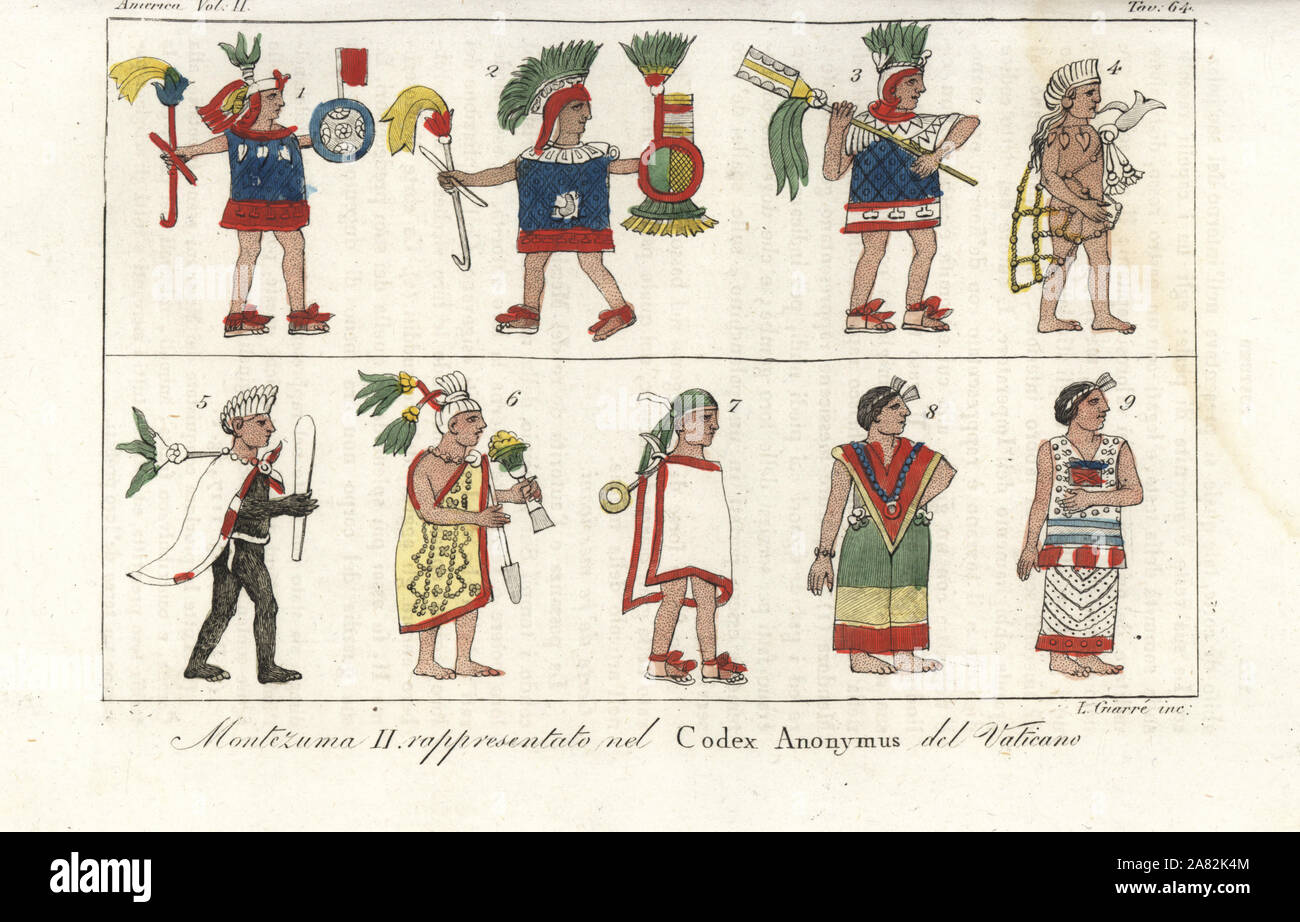 America Vol. II.
Tav: 64.
1
2
3
4
5
6
7
8
9
L. Giarré inc:
Montézuma II. rappresentato nel Codex Anonymus del Vaticano
alamy
alamy
Image ID: 2A82K4M
www.alamy.com